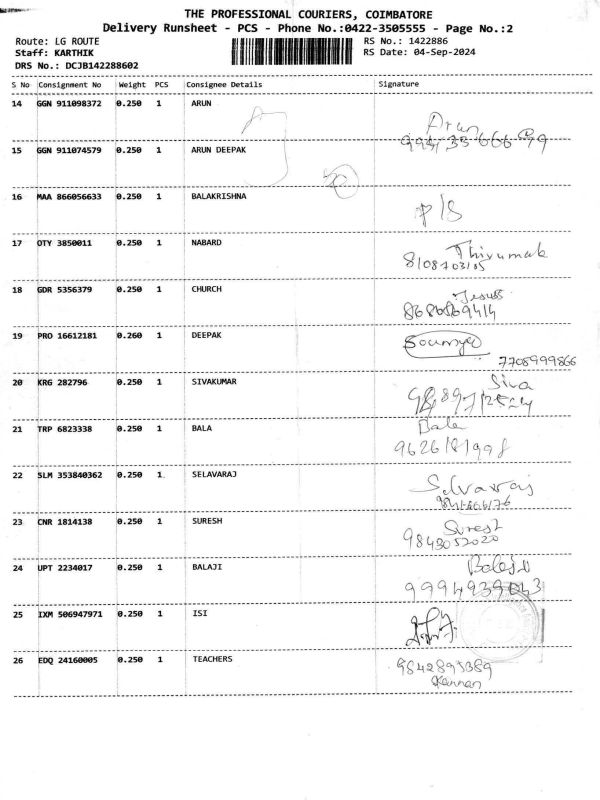 THE PROFESSIONAL COURIERS, COIMBATORE
Delivery Runsheet - PCS - Phone No.:0422-3505555 - Page No.:2
Route: LG ROUTE RS No.: 1422886
Staff: KARTHIK RS Date: 04-Sep-2024
DRS No.: DCJB142288602
S No Consignment No Weight PCS Consignee Details Signature
14 GGN 911098372 0.250 1 ARUN Arun
15 GGN 911074579 0.250 1 ARUN DEEPAK
16 MAA 866056633 0.250 1 BALAKRISHNA P/S
17 OTY 3850011 0.250 1 NABARD
8108703105
18 GDR 5356379 0.250 1 CHURCH
19 PRO 16612181 0.260 1 DEEPAK Soumya
7708999866
20 KRG 282796 0.250 1 SIVAKUMAR Siva
21 TRP 6823338 0.250 1 BALA Bala
9626181998
22 SLM 353840362 0.250 1 SELAVARAJ Selvaraj
23 CNR 1814138 0.250 1 SURESH Suresh
9843052020
24 UPT 2234017 0.250 1 BALAJI Balaji
9994939043
25 IXM 506947971 0.250 1 ISI
26 EDQ 24160005 0.250 1 TEACHERS 9842895389
Kannan